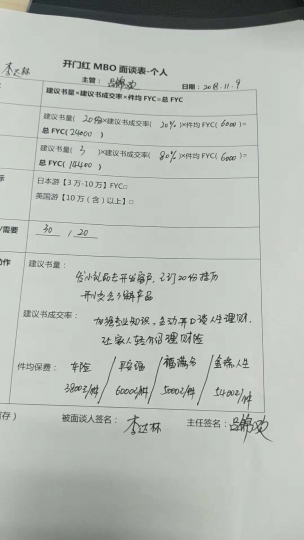 开门红 MBO 面谈表-个人
李达林 主管: 日期: 2018.11.9
建议书量*建议书成交率*件均 FYC=总 FYC
建议书量( 20份 )*建议书成交率( 20% )*件均 FYC( 6000 )=
总 FYC( 24000 )
建议书量( 3 )*建议书成交率( 80% )*件均 FYC( 6000 )=
总 FYC( 14400 )
标 日本游【3 万-10 万】FYC□
美国游【10 万（含）以上】□
/需要 30 / 20
动作 建议书量:
发小礼品去开发客户,
建议书成交率: 加强专业知识, 主动开口谈人生理财,
让家人转介绍理财险
件均保费: 车险 / 平安福 / 福满分 / 金瑞人生
3800元/件 6000元/件 5000元/件 5400元/件
存) 被面谈人签名: 李达林 主任签名: